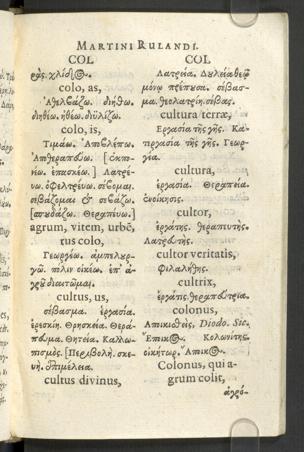 MARTINI RULANDI.
COL
ρὸς. κλίδιος.
colo, as,
Ἀηελθάζω. διηθω.
διηθέω, ἠθέω. διυλίζω.
colo, is,
Τιμάω. Ἀποβλέπω.
Ἀποθεραπεύω. [ἐκπο-
νέω. ἐπασκέω.] Λατρεύ-
ω. ὀφελτρεύω. σέβομαι.
σεβάζομαι & σεβάζω.
[σπυδάζω. Θεραπεύω.]
agrum, vitem, urbē,
rus colo,
Γεωργέω. ἀμπελυρ-
γῶ. πόλιν οἰκέω. ἐπ' ἀ-
γρῦ διαιτῶμαι.
cultus, us,
σέβασμα. ἐργασία.
ἐρεσκία. Θρησκεία. Θερά-
πευμα. Θητεία. Καλλω-
πισμὸς. [Περιβολὴ. σκε-
υὴ. ἐπιμέλεια.
cultus divinus,
COL
Λατρεία. Δυλεία θεῷ
μόνῳ πρέπυσα. σέβασ-
μα. θεολατρία. σέβας.
cultura terræ,
Ἐργασία τῆς γῆς. Κα-
τεργασία τῆς γῆς. Γεωρ-
γία.
cultura,
ἐργασία. Θεραπεία.
ἐνοίκησις.
cultor,
ἐργάτης. θεραπευτὴς.
Λατρευτὴς.
cultor veritatis,
Φιλαλήθης.
cultrix,
ἐργάτις. θεραπεύτρια.
colonus,
Ἀποικισθεὶς, Diodo. Sic.
Ἔποικος. Κολωνίτης.
οἰκήτωρ. Ἄποικος.
Colonus, qui a-
grum colit,
ἀγρό-